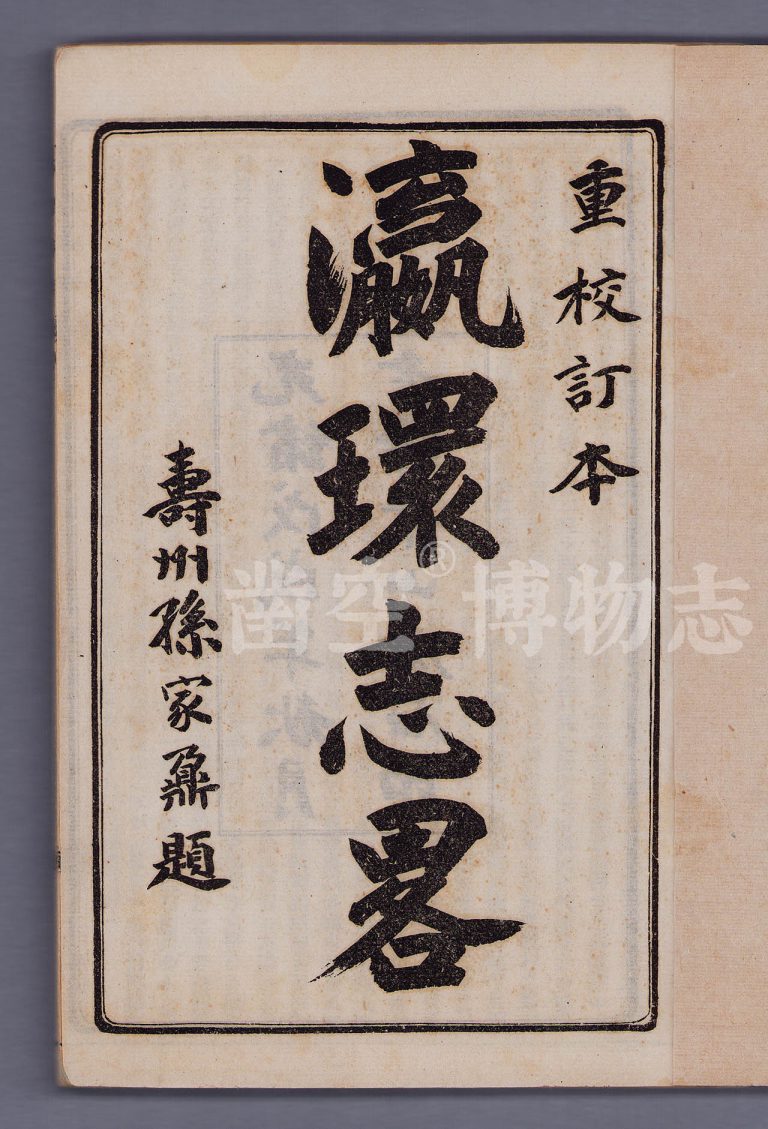 重校訂本
瀛環志畧
壽州孫家鼐題
凿空® 博物志